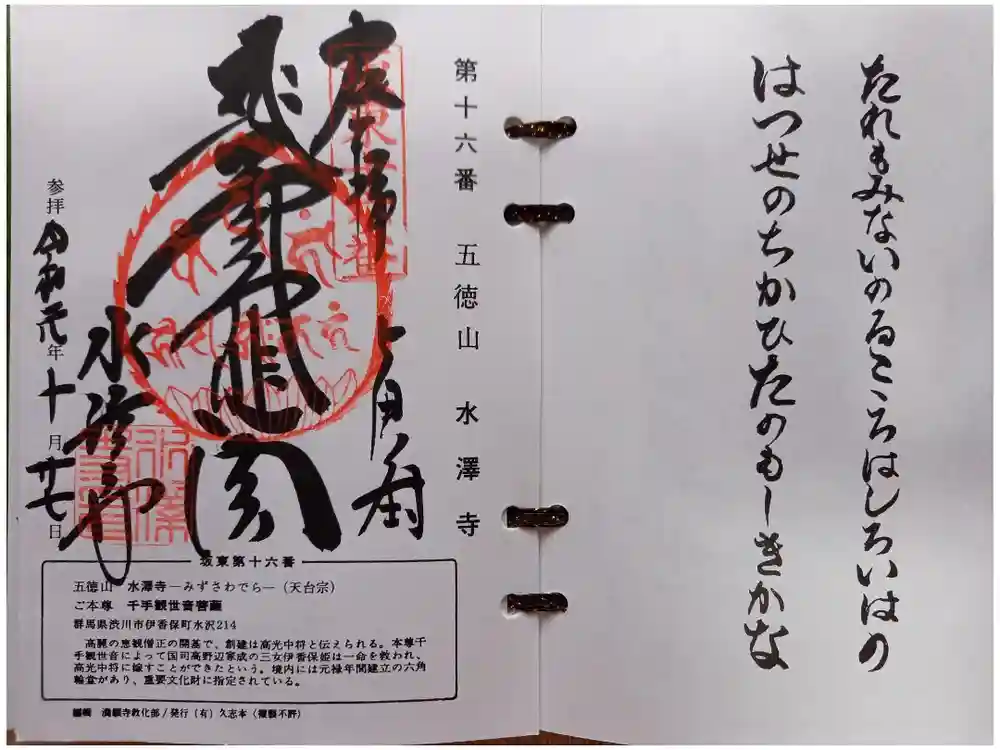 たれもみないのるこころはしろいはの
はつせのちかひたのもしきかな
第十六番 五徳山 水澤寺
水澤寺
参拝 令和元年十月廿七日
坂東第十六番
五徳山 水澤寺―みずさわでら―（天台宗）
ご本尊 千手観世音菩薩
群馬県渋川市伊香保町水沢214
高麗の恵観僧正の開基で、創建は高光中将と伝えられる。本尊千
手観世音によって国司高野辺家成の三女伊香保姫は一命を救われ、
高光中将に嫁すことができたという。境内には元禄年間建立の六角
輪堂があり、重要文化財に指定されている。
編輯 満願寺教化部／発行（有）久志本〈複製不許〉